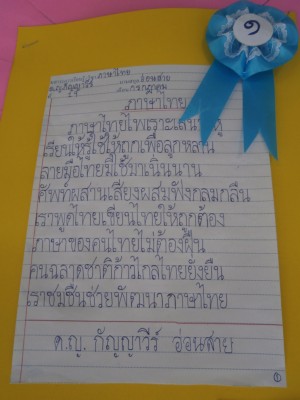 ๑
ภาษาไทย
อ่อนสาย
กรกฎาคม
ภาษาไทย
ภาษาไทยไพเราะเสนาะหู
เรียนให้รู้ใช้ให้ถูกเพื่อลูกหลาน
ลายมือไทยมีใช้มาเนิ่นนาน
ศัพท์ผสานเสียงผสมฟังกลมกลืน
เราพูดไทยเขียนไทยให้ถูกต้อง
ภาษาของคนไทยไม่ต้องฝืน
คนฉลาดชาติก้าวไกลไทยยั่งยืน
เราชมชื่นช่วยพัฒนาภาษาไทย
ด.ญ. กัญญาวีร์ อ่อนสาย